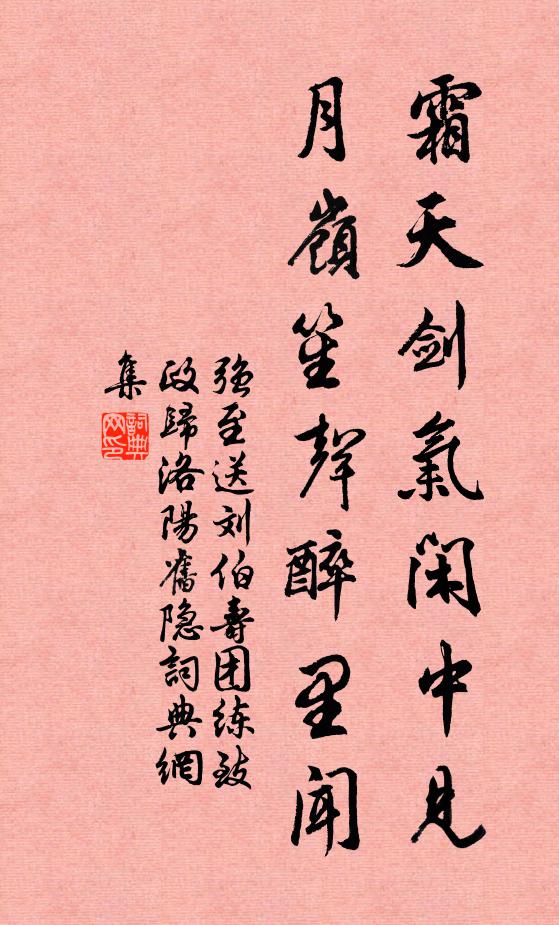 霜天剑氣閑中見
月嶺笙聲醉里聞
强至送刘伯壽团练致
政歸洛陽舊隐詞典網
集
詞典
网印